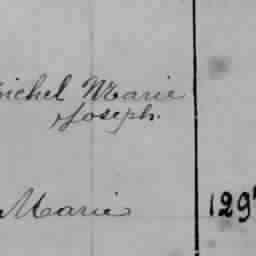 Michel Marie
Joseph.
Marie 129